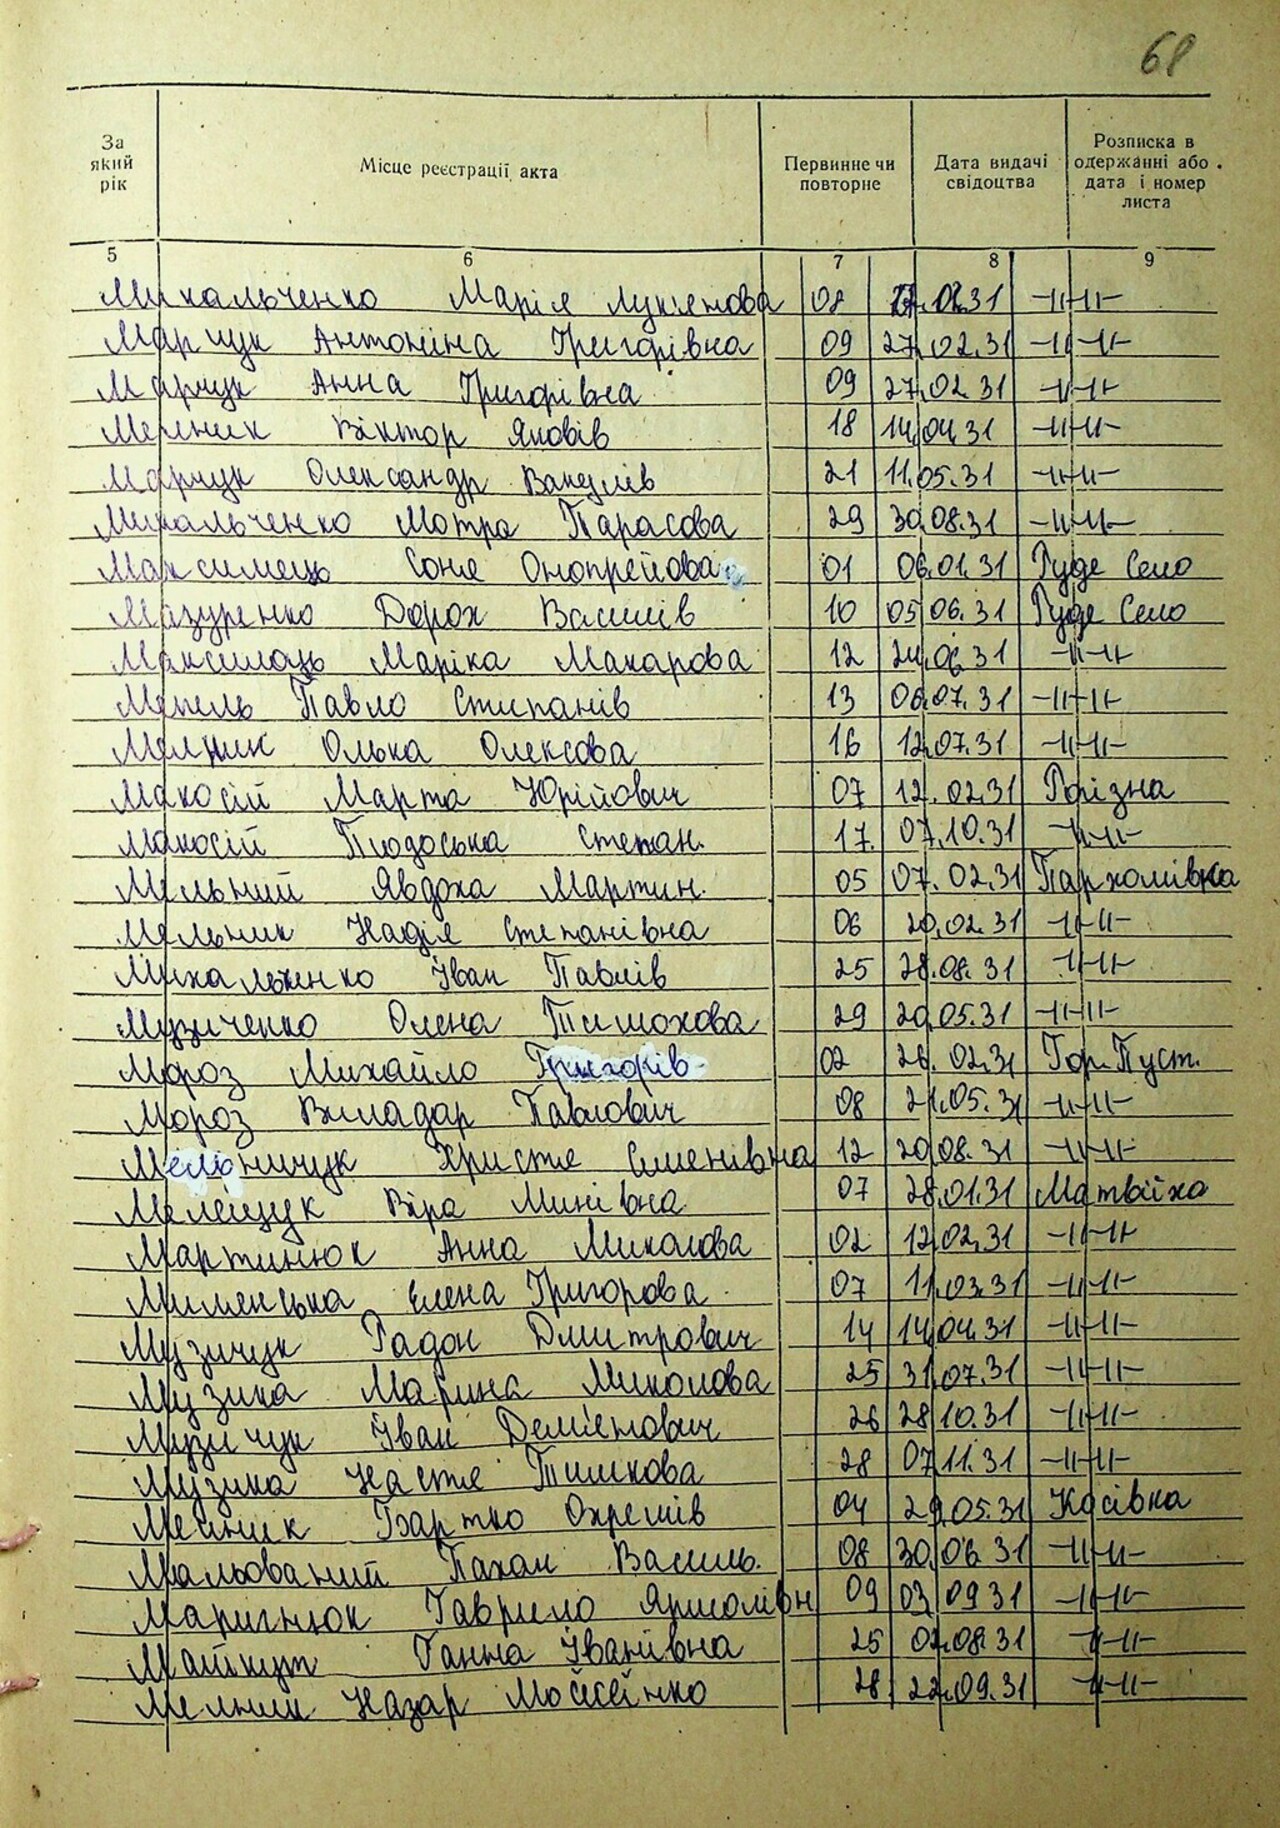 68
За який рік
Місце реєстрації акта
Первинне чи повторне
Дата видачі свідоцтва
Розписка в одержанні або дата і номер листа
5 6 7 8 9
Михальченко Марія Лук'янова 08 27.02.31 -//-//-
Марчук Антоніна Григорівна 09 27.02.31 -//-//-
Марчук Анна Григорівна 09 27.02.31 -//-//-
Мельник Віктор Яковів 18 14.04.31 -//-//-
Марчук Олександр Вакулів 21 11.05.31 -//-//-
Михальченко Мотра Тарасова 29 30.08.31 -//-//-
Максимець Соня Онопрейова 01 06.01.31 Руде Село
Мазуренко Дорох Василів 10 05.06.31 Руде Село
Максимець Маріка Макарова 12 24.06.31 -//-//-
Мепель Павло Степанів 13 06.07.31 -//-//-
Мельник Олька Олексова 16 12.07.31 -//-//-
Макосій Марта Юрійович 07 12.02.31 Розізна
Макосій Теодоська Степан. 17. 07.10.31 -//-//-
Мельний Явдоха Мартин. 05 07.02.31 Пархомівка
Мельник Надія Степанівна 06 20.02.31 -//-//-
Михальченко Іван Павлів 25 28.08.31 -//-//-
Музиченко Олена Тимохова 29 20.05.31 -//-//-
Мороз Михайло Григорів 02 26.02.31 Гор. Пуст.
Мороз Павлович 08 21.05.31 -//-//-
Мельничук Христя Семенівна 12 20.08.31 -//-//-
Мелещук Віра Минівна 07 28.01.31 Матвіїха
Мартинюк Анна Миколова 02 12.02.31 -//-//-
Мименська Елена Григорова 07 11.03.31 -//-//-
Музичук Радон Дмитрович 14 14.04.31 -//-//-
Музика Марина Миколова 25 31.07.31 -//-//-
Музичук Іван Дем'янович 26 28.10.31 -//-//-
Музика Настя Тишкова 28 07.11.31 -//-//-
Мельник Вартко Охремів 04 29.05.31 Косівка
Мальований Пахан Василь. 08 30.06.31 -//-//-
Маригнюк Гаврило Ярмолівн 09 03.09.31 -//-//-
Машкут Ганна Іванівна 25 02.08.31 -//-//-
Мельник Назар Мойсейнко 28 22.09.31 -//-//-